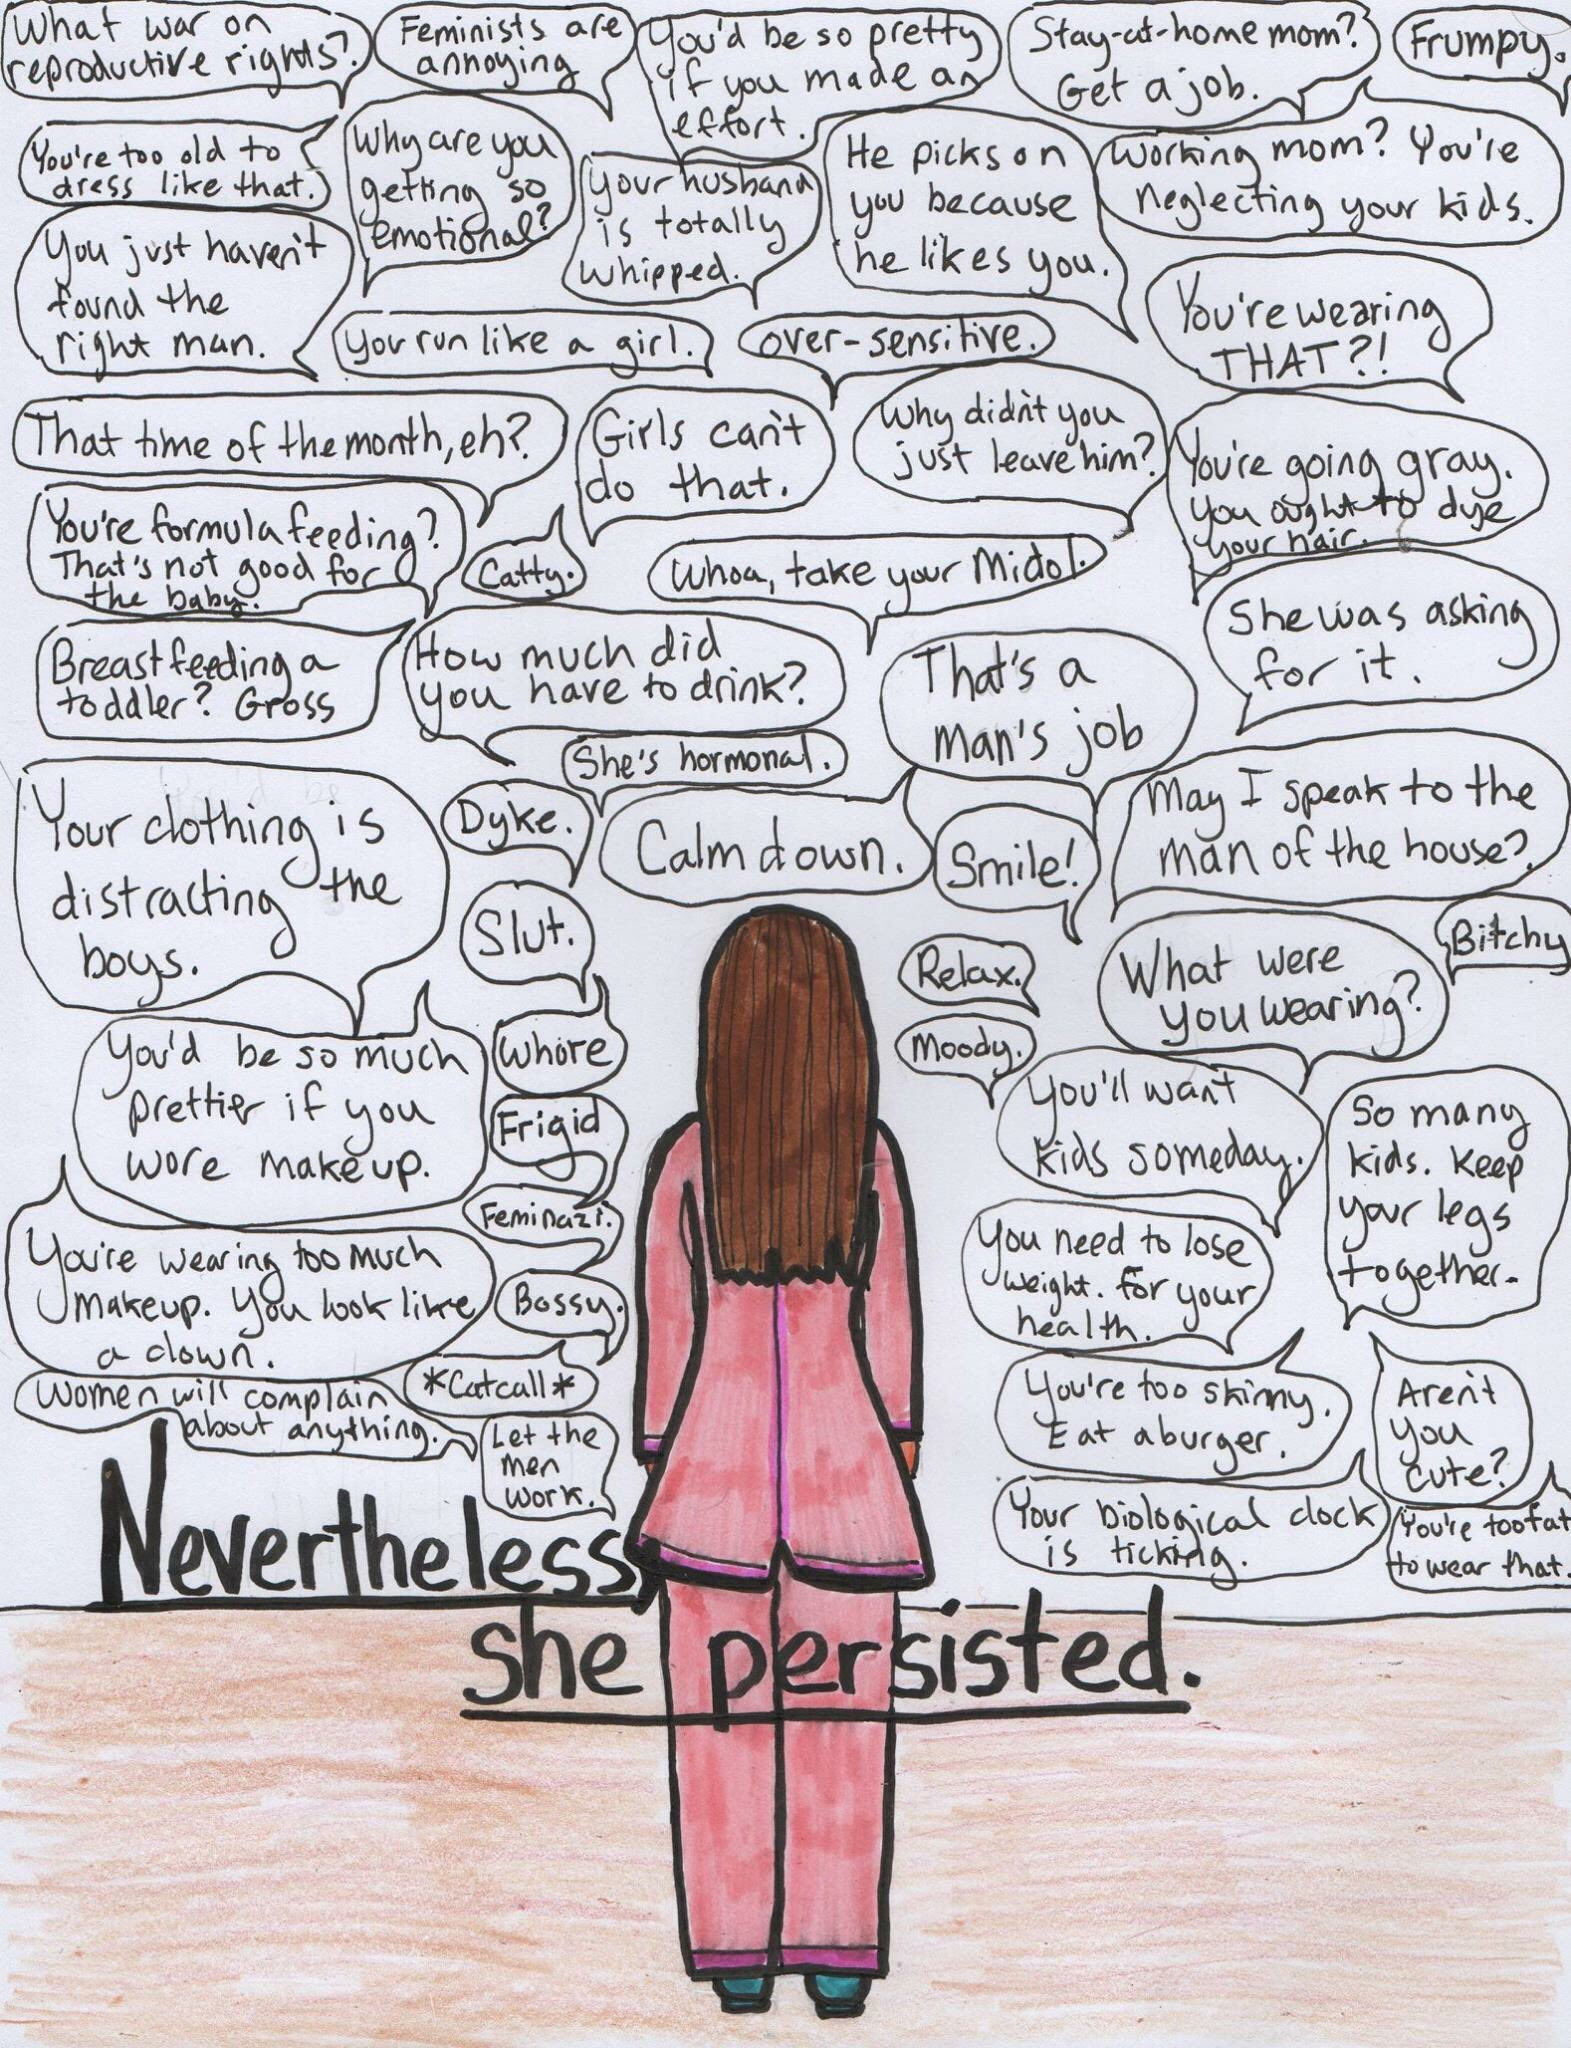 What war on
reproductive rights?
Feminists are
annoying
You'd be so pretty
if you made an
effort.
Stay-at-home mom?
Get a job.
Frumpy.
You're too old to
dress like that.
Why are you
getting so
emotional?
Your husband
is totally
whipped.
He picks on
you because
he likes you.
Working mom? You're
neglecting your kids.
You just haven't
found the
right man.
You run like a girl.
over-sensitive.
You're wearing
THAT?!
That time of the month, eh?
Girls can't
do that.
Why didn't you
just leave him?
You're going gray.
You ought to dye
your hair.
You're formula feeding?
That's not good for
the baby.
Catty.
Whoa, take your Midol.
She was asking
for it.
Breastfeeding a
toddler? Gross
How much did
you have to drink?
That's a
man's job
She's hormonal.
Your clothing is
distracting the
boys.
Dyke.
Calm down.
Smile!
May I speak to the
man of the house?
Slut.
Relax.
What were
you wearing?
Bitchy
You'd be so much
prettier if you
wore makeup.
Whore
Moody.
You'll want
kids someday.
So many
kids. Keep
your legs
together.
Frigid
Feminazi.
You're wearing too much
makeup. You look like
a clown.
Bossy.
You need to lose
weight. For your
health.
Women will complain
about anything.
*Catcall*
Let the
men
work.
You're too skinny.
Eat a burger.
Aren't
you
cute?
Your biological clock
is ticking.
You're too fat
to wear that.
Nevertheless,
she persisted.